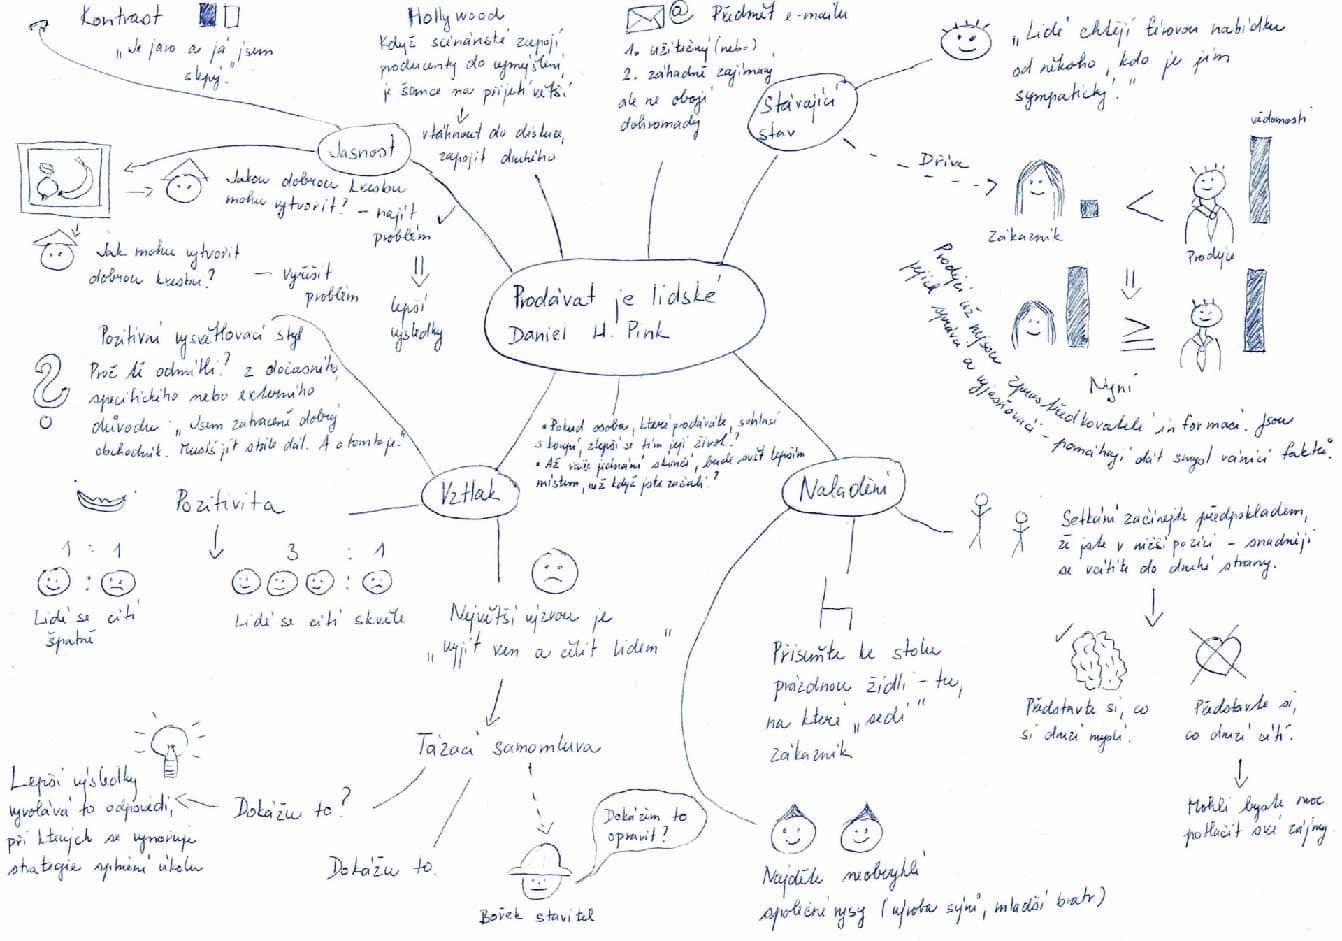 Kontrast
„Je jaro a já jsem
slepý."
Hollywood
Když scénáristé zapojí
producenty do vymýšlení,
je šance na přijetí větší
vtáhnout do diskuze,
zapojit druhého
@ Předmět e-mailu
1. užitečný (nebo)
2. záhadně zajímavý
ale ne obojí
dohromady
Stávající
stav
„Lidé chtějí férovou nabídku
od někoho, kdo je jim
sympatický."
vědomosti
Dříve
Zákazník
<
Prodejce
≥
Nyní
Prodejci už nejsou zprostředkovatelé informací. Jsou
jejich správci a vyjasňovači - pomáhají dát smysl vánici faktů.
Jasnost
Jakou dobrou kresbu
mohu vytvořit? - najít
problém
Jak mohu vytvořit
dobrou kresbu? - vyřešit
problém
lepší
výsledky
Prodávat je lidské
Daniel H. Pink
Pozitivní vysvětlovací styl
Proč tě odmítli? Z dočasného,
specifického nebo externího
důvodu. „Jsem zatraceně dobrý
obchodník. Musíš jít stále dál. A o tom to je."
• Pokud osoba, které prodáváte, souhlasí
s koupí, zlepší se tím její život?
• Až vaše jednání skončí, bude svět lepším
místem, než když jste začali?
Vztlak
Pozitivita
1 : 1
:
Lidé se cítí
špatně
3 : 1
:
Lidé se cítí skvěle
Největší výzvou je
„vyjít ven a čelit lidem"
Tázací samomluva
Dokážu to?
Lepší výsledky
vyvolává to odpovědi,
při kterých se vynořuje
strategie splnění úkolu
Dokážu to.
Dokážem to
opravit?
Bořek stavitel
Naladění
Setkání začínejte předpokladem,
že jste v nižší pozici - snadněji
se vcítíte do druhé strany.
Představte si, co
si druzí myslí.
Představte si,
co druzí cítí.
Mohli byste moc
potlačit své zájmy.
Přisuňte ke stolu
prázdnou židli - tu,
na které „sedí"
zákazník
Najděte neobvyklé
společné rysy (výroba sýrů, mladší bratr)